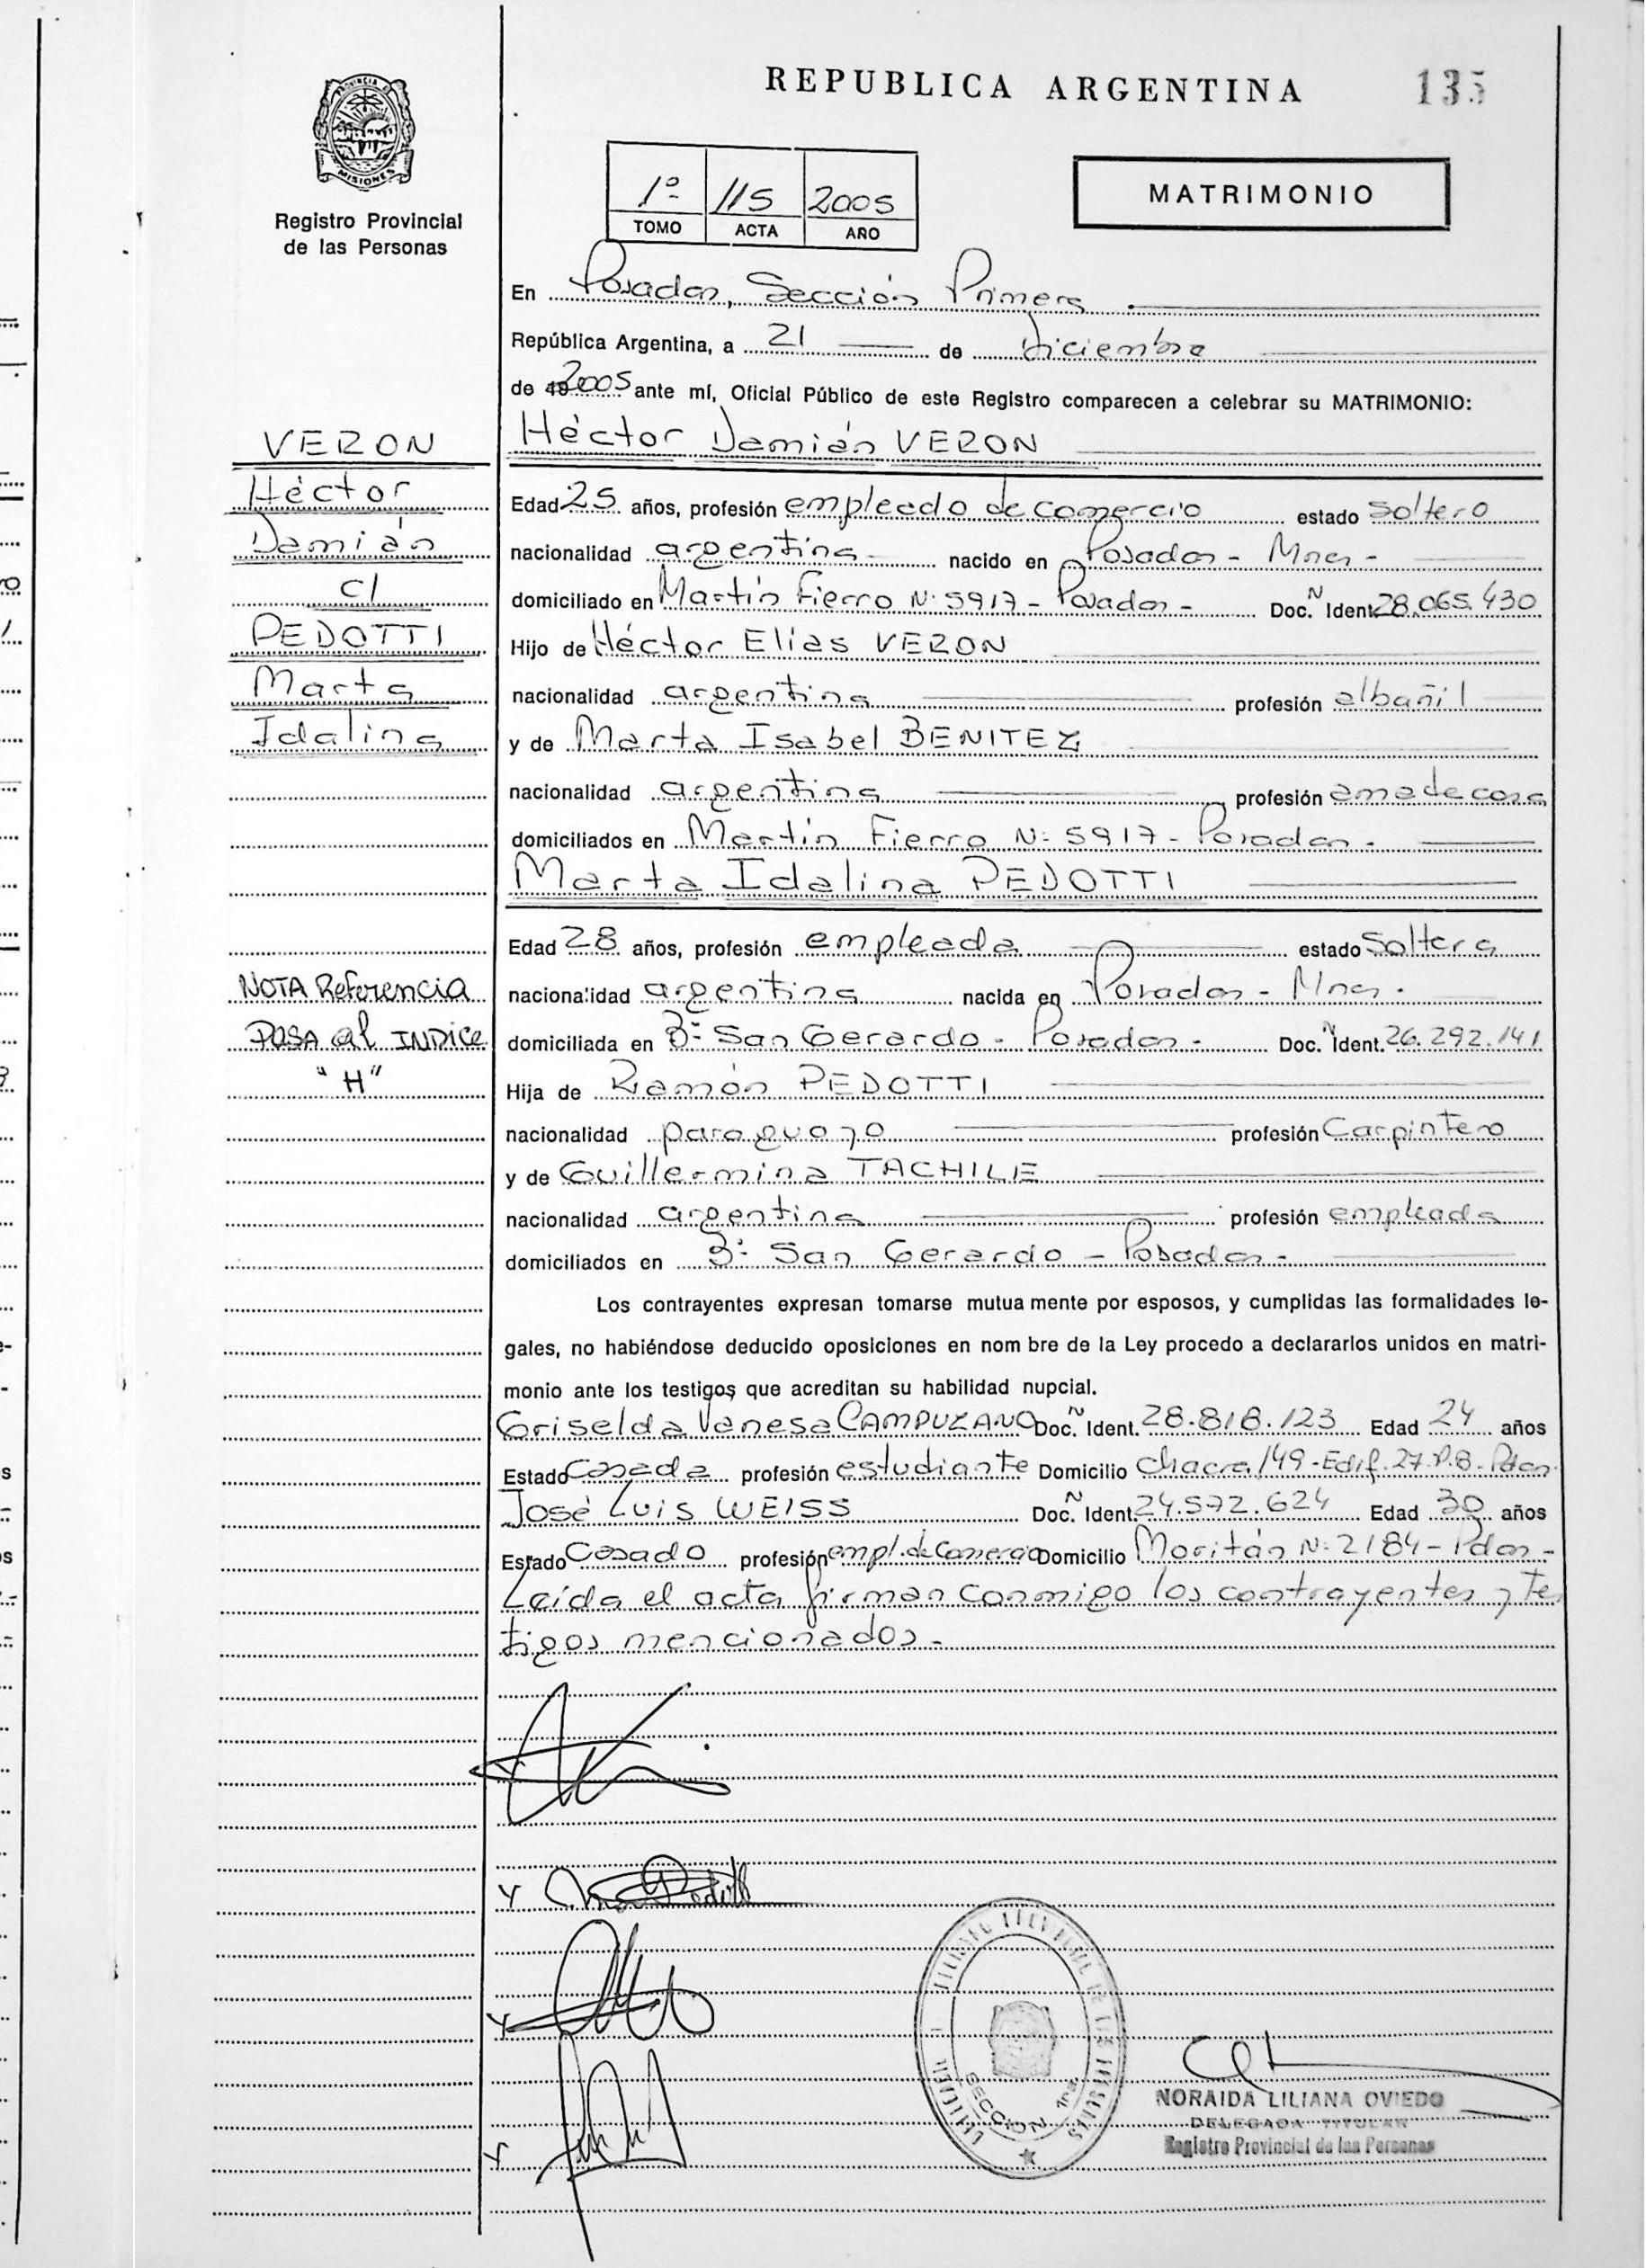 REPUBLICA ARGENTINA 135
PROVINCIA DE MISIONES
Registro Provincial
de las Personas
1º 115 2005
TOMO ACTA AÑO
MATRIMONIO
En Posadas, Sección Primera.
República Argentina, a 21 de Diciembre
de 19 2005 ante mí, Oficial Público de este Registro comparecen a celebrar su MATRIMONIO:
VERON
Héctor
Damián
c/
PEDOTTI
Marta
Idalina
NOTA Referencia
PASA al INDICE
"H"
Héctor Damián VERON
Edad 25 años, profesión empleado de comercio estado soltero
nacionalidad argentina nacido en Posadas - Mnes -
domiciliado en Martín Fierro Nº 5917 - Posadas - Doc. N Ident. 28.065.430
Hijo de Héctor Elias VERON
nacionalidad argentina profesión albañil
y de Marta Isabel BENITEZ
nacionalidad argentina profesión ama de casa
domiciliados en Martín Fierro Nº 5917 - Posadas -
Marta Idalina PEDOTTI
Edad 28 años, profesión empleada estado soltera
nacionalidad argentina nacida en Posadas - Mnes.
domiciliada en Bº San Gerardo - Posadas - Doc. N Ident. 26.292.141
Hija de Ramón PEDOTTI
nacionalidad paraguayo profesión Carpintero
y de Guillermina TACHILE
nacionalidad argentina profesión empleada
domiciliados en Bº San Gerardo - Posadas -
Los contrayentes expresan tomarse mutua mente por esposos, y cumplidas las formalidades le-
gales, no habiéndose deducido oposiciones en nom bre de la Ley procedo a declararlos unidos en matri-
monio ante los testigos que acreditan su habilidad nupcial.
Griselda Vanesa CAMPUZANO Doc. N Ident. 28.818.123 Edad 24 años
Estado casada profesión estudiante Domicilio Chacra 149 - Edif. 27. P.B. - Pdas.
José Luis WEISS Doc. N Ident. 24.572.624 Edad 30 años
Estado Casado profesión empl. de Comercio Domicilio Moritán Nº 2184 - Pdas -
Leída el acta firman conmigo los contrayentes y te
tigos mencionados -
SECCION 1ra
NORAIDA LILIANA OVIEDO
DELEGADA TITULAR
Registro Provincial de las Personas